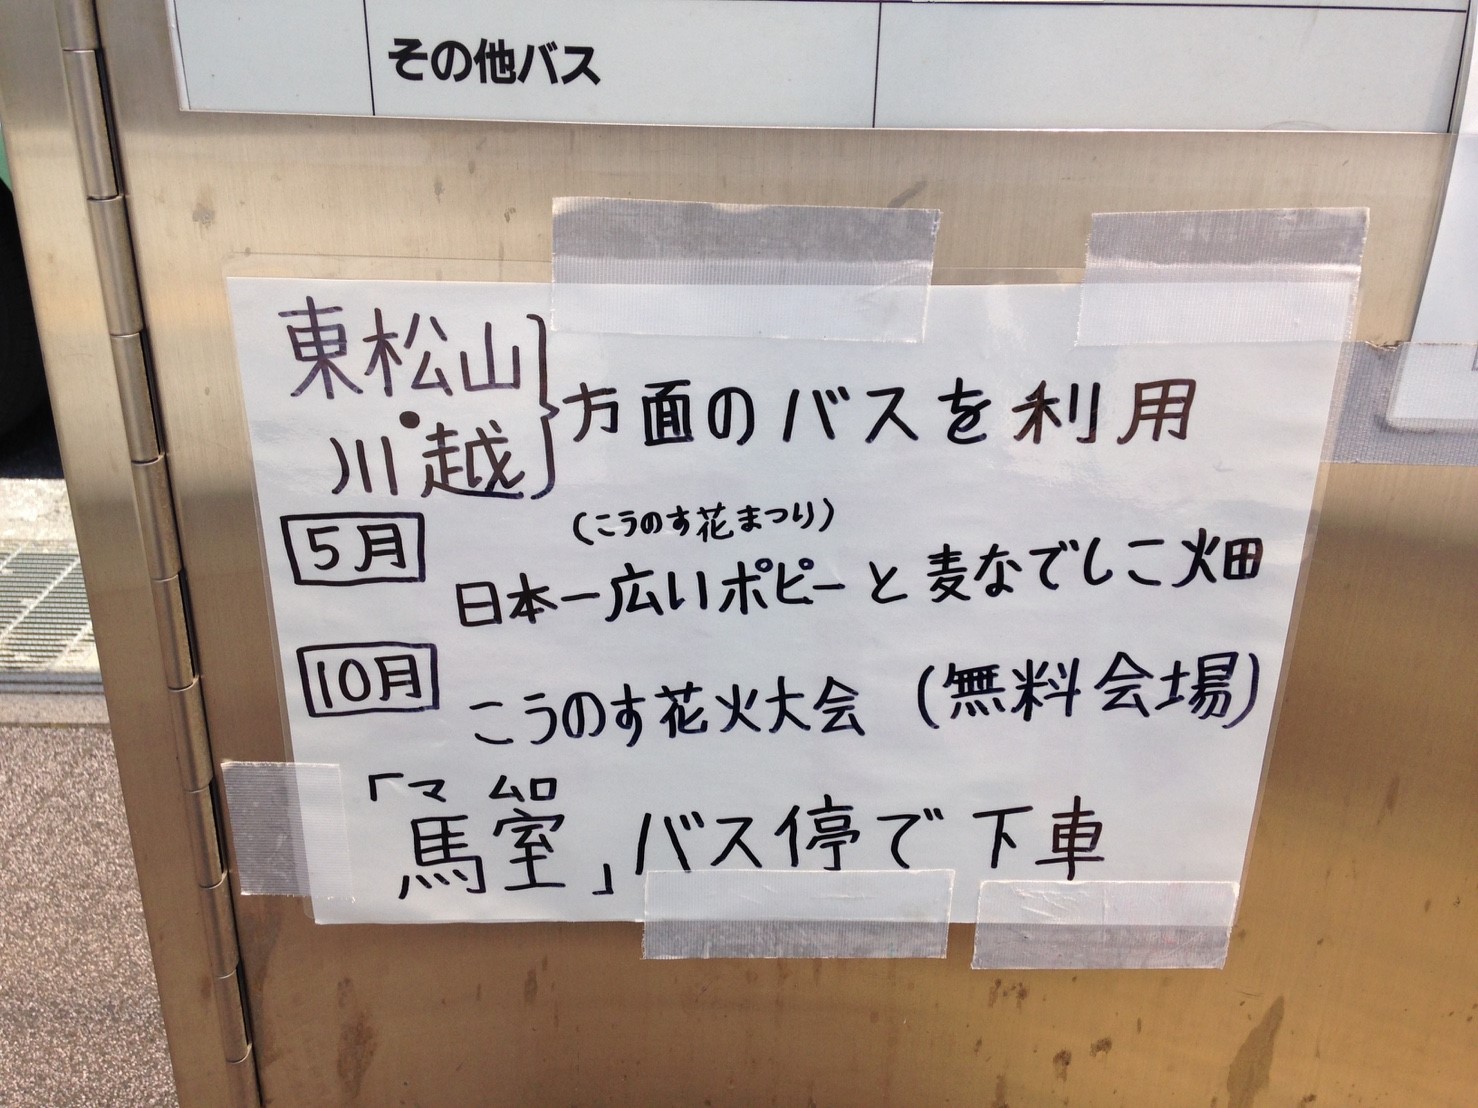 その他バス
東松山・川越}方面のバスを利用
(こうのす花まつり)
5月 日本一広いポピーと麦なでしこ畑
10月 こうのす花火大会 (無料会場)
マ ムロ
「馬室」バス停で下車